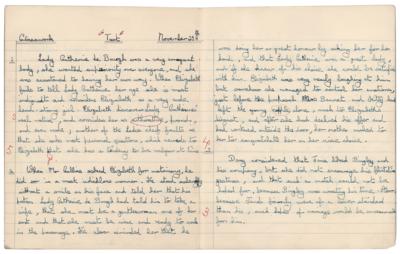 Classwork "Test" November 25th
2. Lady Catherine de Bourgh was a very arrogant
lady, she wanted superiority over everyone, and she
was accustomed to having her own way. When Elizabeth
fails to tell Lady Catherine her age she is most
indignant and considers Elizabeth as a very rude,
head strong girl. Elizabeth however Lady Catherine's
real nature, and considers her as proud,
and even rude; another of the Ladies chief faults is
that she asks most personal questions, which reveals to
Elizabeth that she has a tendency to be vulgar at times
5
3. When Mr Collins asked Elizabeth for matrimony, he
did so in a most manner. He stood
without a smile on his face and told her that his
Lady Catherine de Bourgh had told him to take a
wife, that she must be a gentlewoman one of her
and that she must be wise and ready to
in the parsonage. He also reminded her that he
was doing her a great honour by asking her for her
hand, and that Lady Catherine was a great lady,
and of his choice, she would be
with her. Elizabeth was very nearly laughing at him
but somehow she managed to control her emotions,
just before the proposals Mrs Bennet and Kitty had
left the young couple alone, much to Elizabeth's
disgust, and after she had declined his offer and
had outside the door, her mother rushed to
her to congratulate her on her wise choice.
4
Darcy considered that Jane liked Bingley and
his company, but she did not encourage his
, and that such a match would not be
for, because Bingley was wasting his time. Also,
because Jane's family were of a lower standard
than his, and of marriage would be
for him.
3